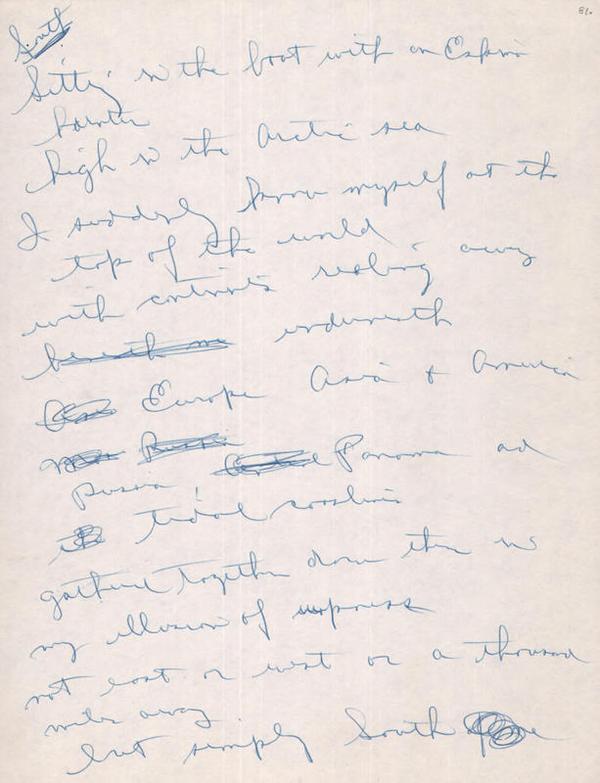 81.
South
Sitting in the boat with an Eskimo
hunter
high in the Arctic sea
I suddenly know myself at the
top of the world
with continents sealing away
beneath me underneath
Europe Asia + America
Russia Panama and
Russia,
tidal coastlines
gathered together down there in
my illusion of
not east or west or a thousand
miles away
but simply South